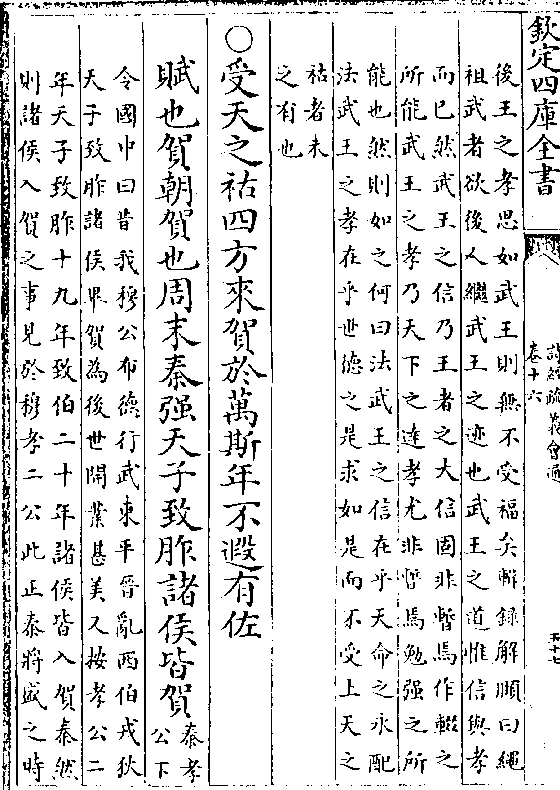 欽定四庫全書
詩經疏義會通
卷十六
後王之孝思如武王則無不受福矣輯錄解頤曰繩
祖武者欲後人繼武王之迹也武王之道惟信與孝
而已然武王之信乃王者之大信固非暫焉作輟之
所能武王之孝乃天下之達孝尤非暫焉勉强之所
能也然則如之何曰法武王之信在乎天命之永配
法武王之孝在乎世德之是求如是而不受上天之
祜者未
之有也
○受天之祜四方來賀於萬斯年不遐有佐
賦也賀朝賀也周末秦强天子致胙諸侯皆賀
秦孝
公下
令國中曰昔我穆公布德行武東平晉亂西伯戎狄
天子致胙諸侯畢賀為後世開業甚美又按孝公二
年天子致胙十九年致伯二十年諸侯皆入賀秦然
則諸侯入賀之事見於穆孝二公此正秦將盛之時